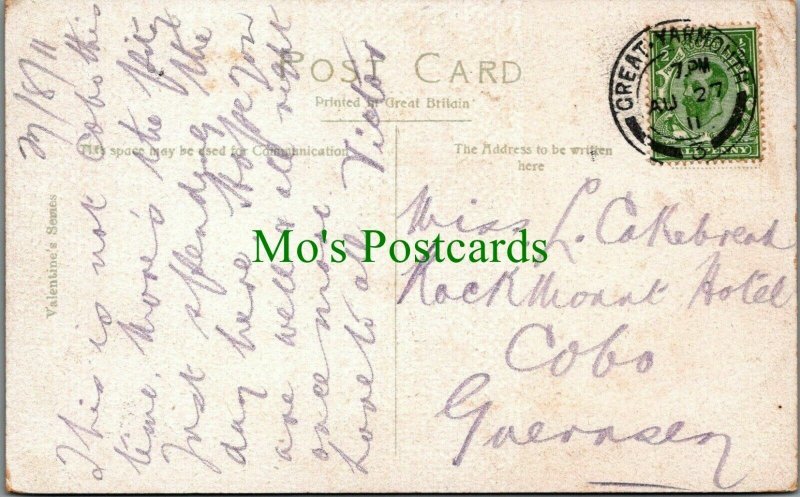 POST CARD
Printed in Great Britain
This space may be used for Communication
The Address to be written
here
Valentine's Series
27/8/11
This is not Cobo this
time, more's the pity
Just spending the
day here. Hope you
are well & all right
once more
Love to all Victor
Miss L. Cakebread
Rockmount Hotel
Cobo
Guernsey
GREAT YARMOUTH
7 PM
AU 27
11
HALFPENNY
Mo's Postcards